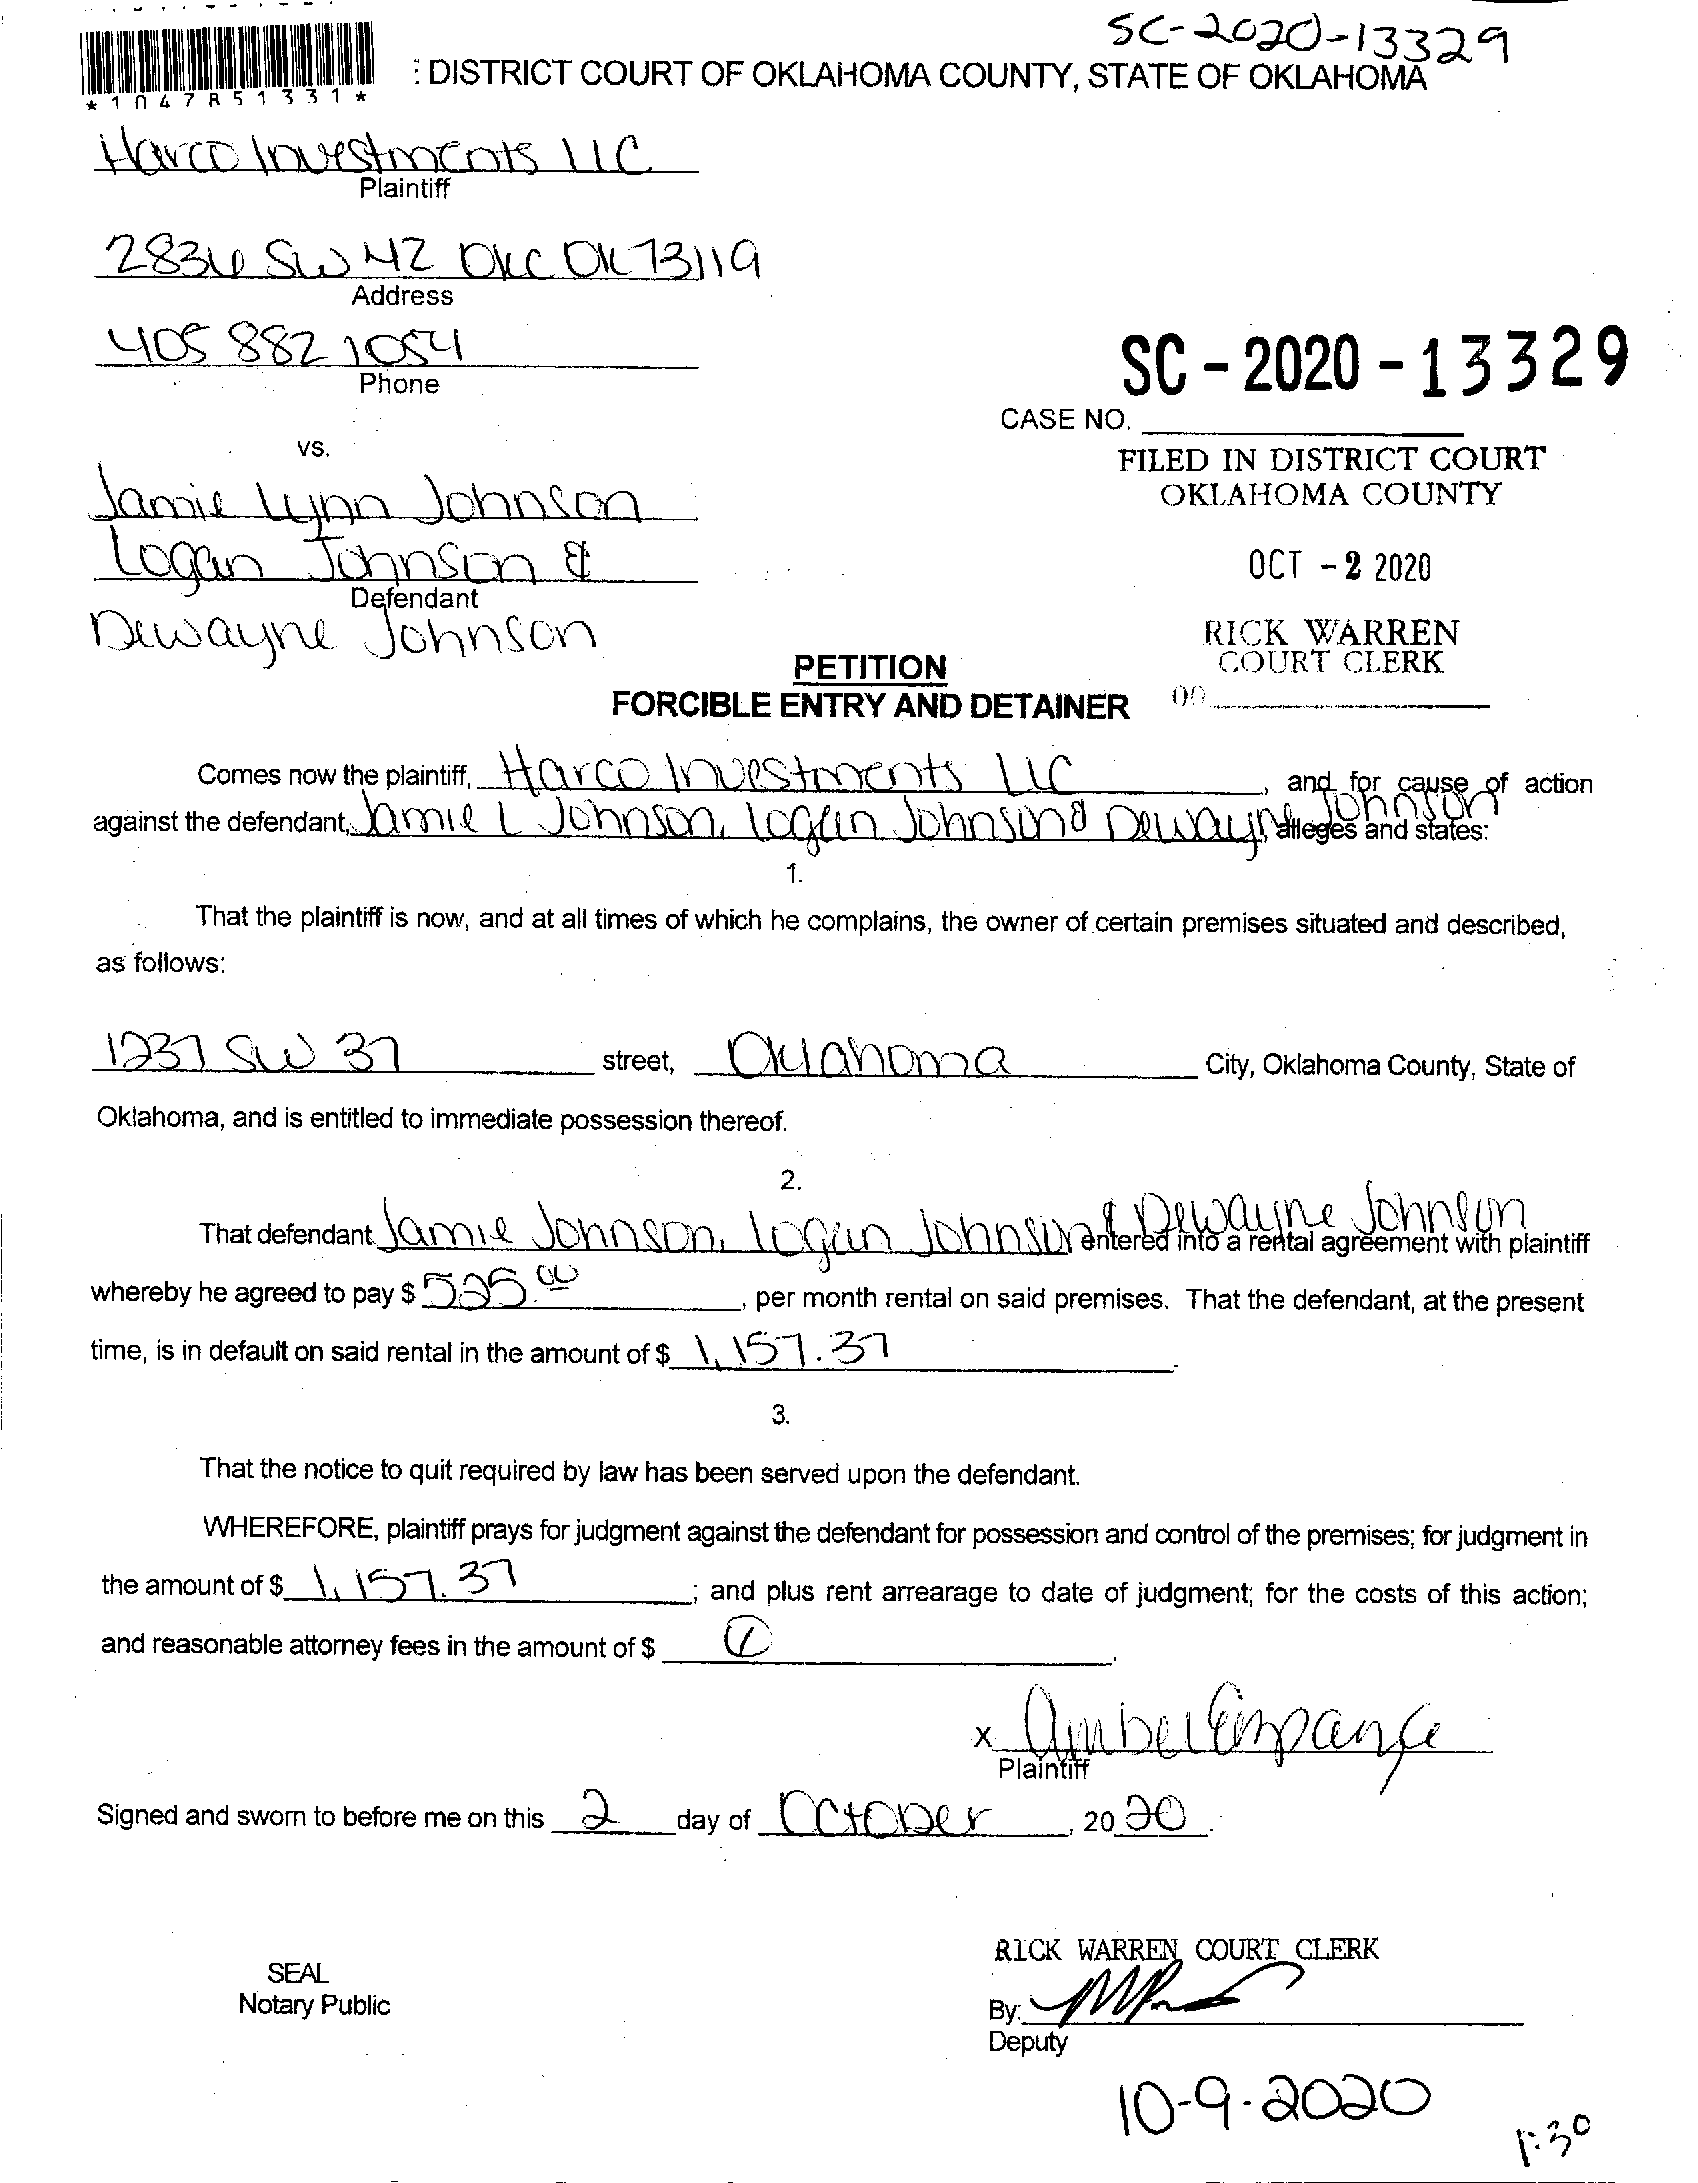 SC-2020-13329
: DISTRICT COURT OF OKLAHOMA COUNTY, STATE OF OKLAHOMA
*1047851331*
Harco Investments LLC
Plaintiff
2836 SW 42 OKC OK 73119
Address
405 882 1054
Phone
SC-2020-13329
CASE NO.
vs.
FILED IN DISTRICT COURT
OKLAHOMA COUNTY
Jamie Lynn Johnson
Logan Johnson &
Defendant
Dewayne Johnson
OCT -2 2020
RICK WARREN
COURT CLERK
PETITION
FORCIBLE ENTRY AND DETAINER
Comes now the plaintiff, Harco Investments LLC, and for cause of action
against the defendant, Jamie L Johnson, Logan Johnson & Dewayne Johnson, alleges and states:
1.
That the plaintiff is now, and at all times of which he complains, the owner of certain premises situated and described,
as follows:
1237 SW 37 street, Oklahoma City, Oklahoma County, State of
Oklahoma, and is entitled to immediate possession thereof.
2.
That defendant Jamie Johnson, Logan Johnson & Dewayne Johnson entered into a rental agreement with plaintiff
whereby he agreed to pay $ 525.00, per month rental on said premises. That the defendant, at the present
time, is in default on said rental in the amount of $ 1,157.37.
3.
That the notice to quit required by law has been served upon the defendant.
WHEREFORE, plaintiff prays for judgment against the defendant for possession and control of the premises; for judgment in
the amount of $ 1,157.37; and plus rent arrearage to date of judgment; for the costs of this action;
and reasonable attorney fees in the amount of $
x Amber
Plaintiff
Signed and sworn to before me on this 2 day of October, 2020.
RICK WARREN COURT CLERK
SEAL
Notary Public
By:
Deputy
10-9-2020
1:30